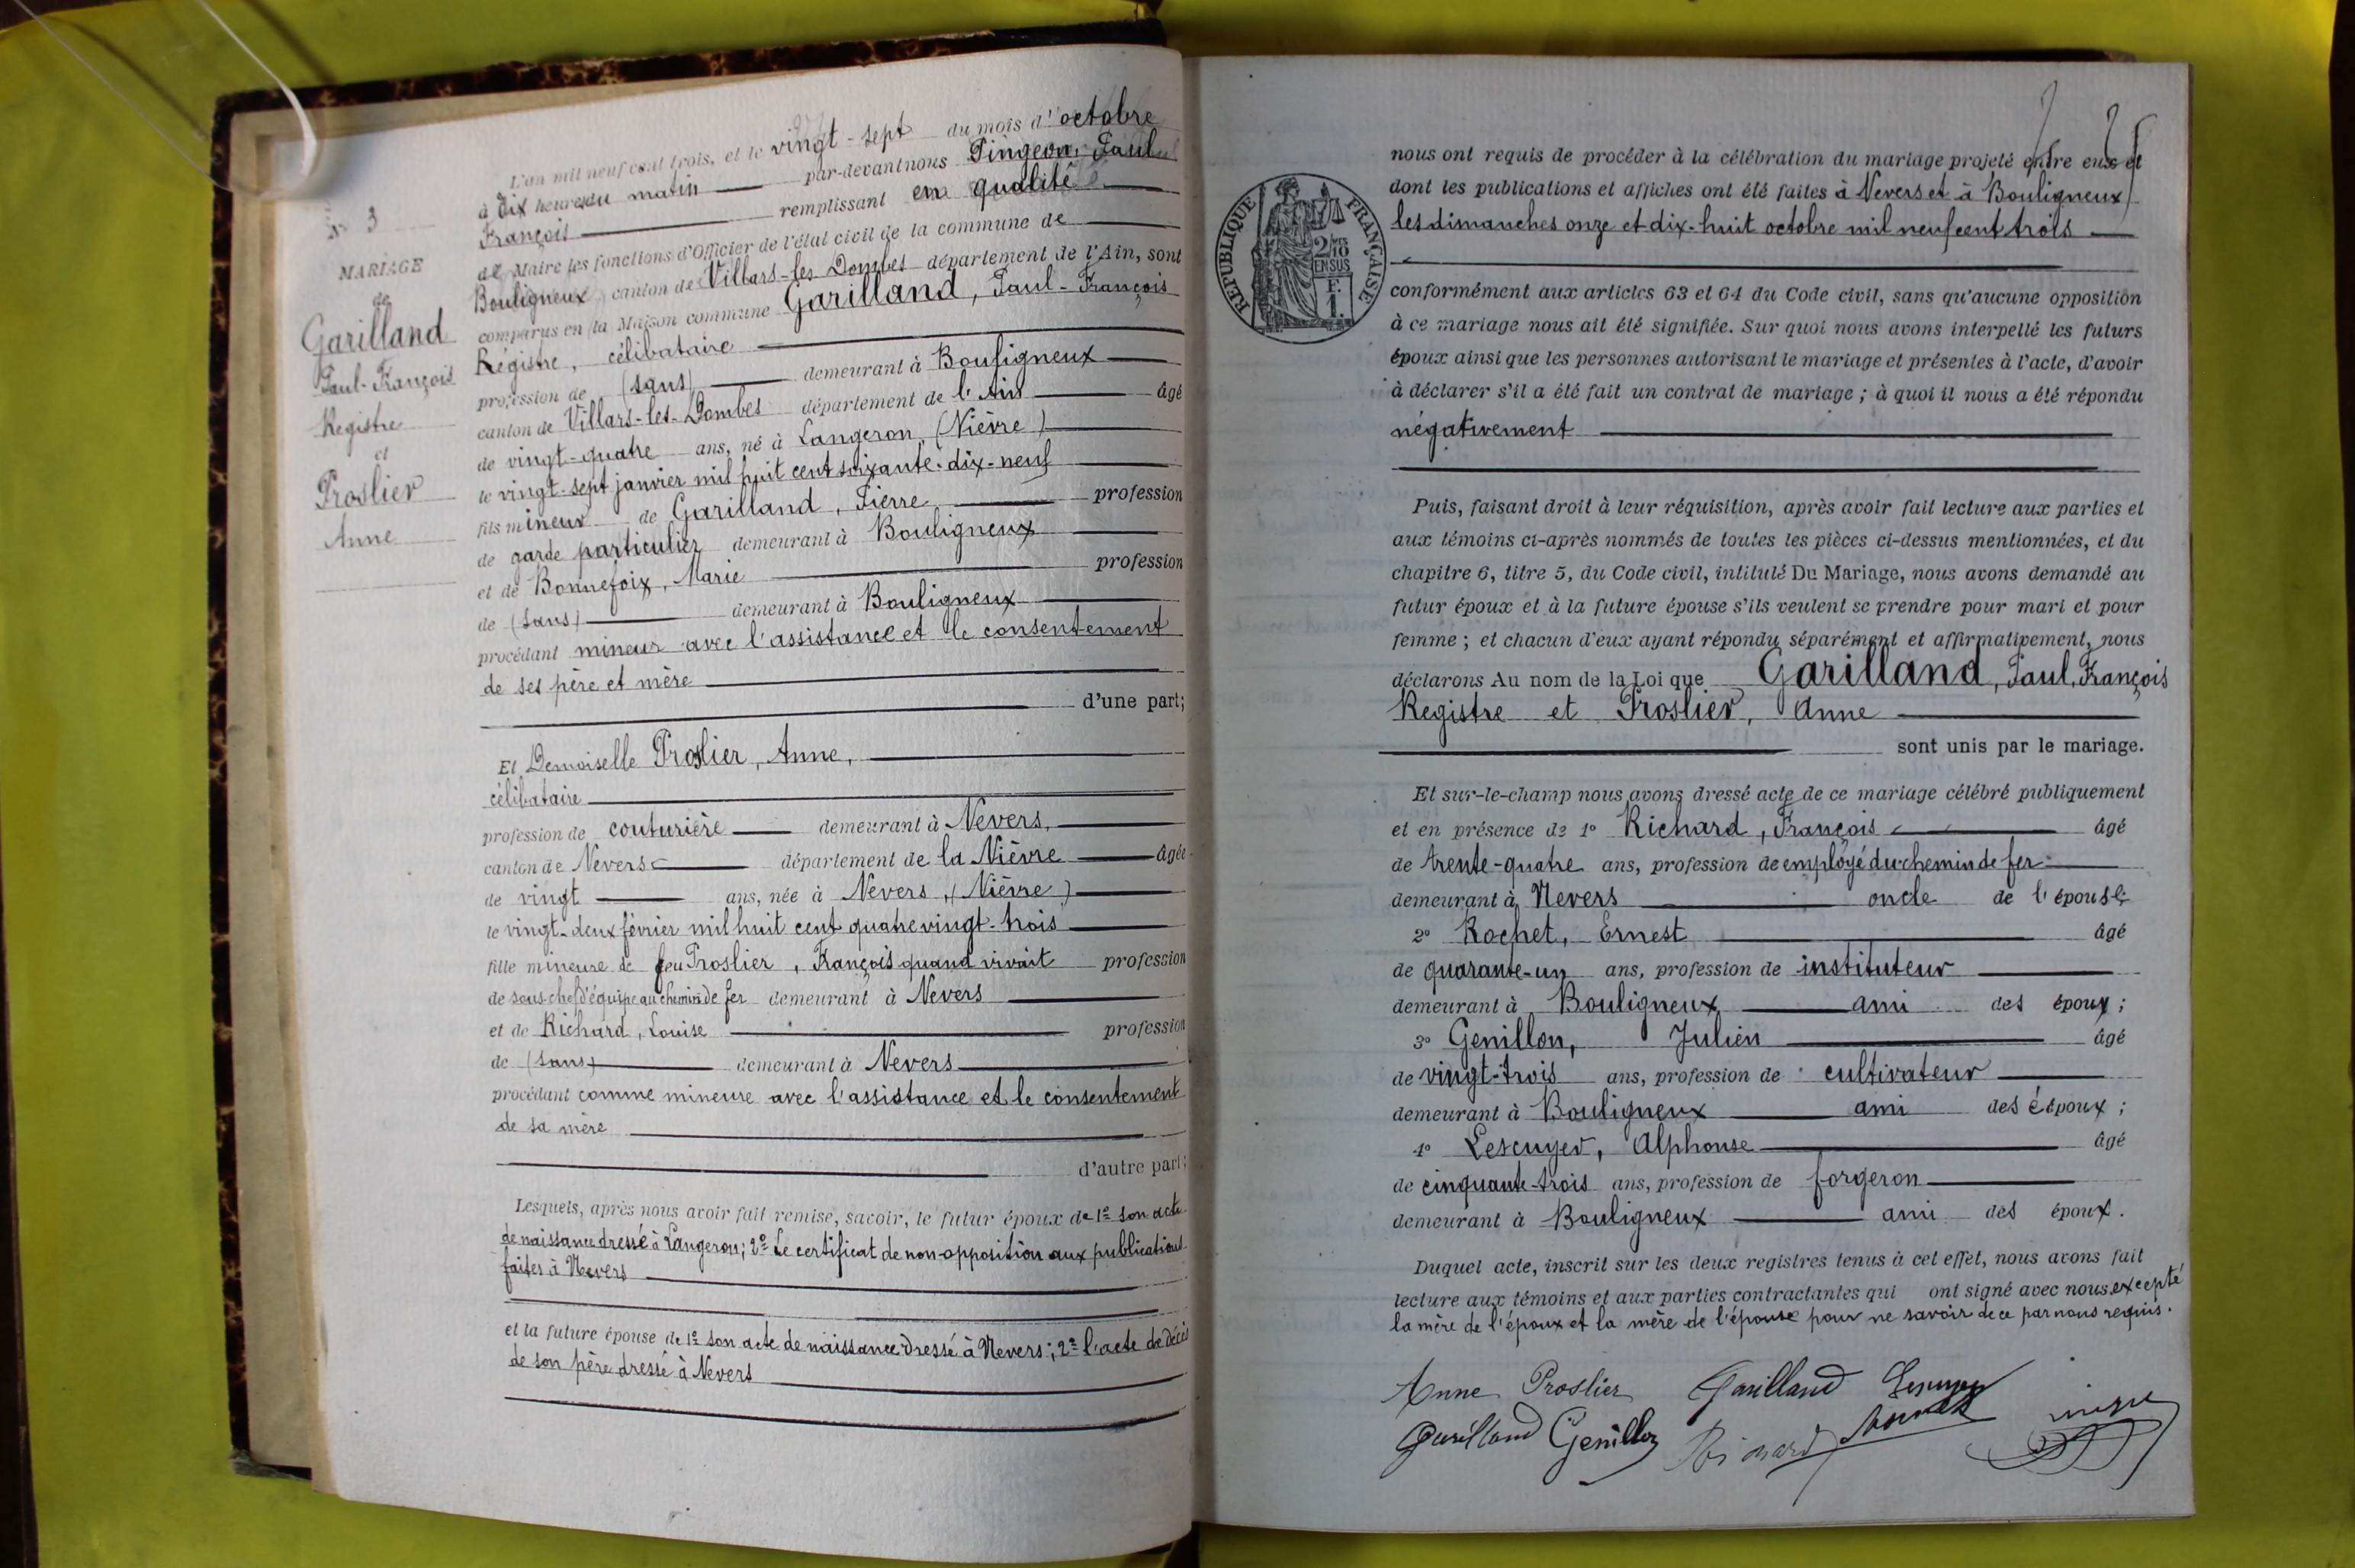 N° 3
MARIAGE
de
Garilland
Paul-François
Régistre
et
Proslier
Anne
L'an mil neuf cent trois, et le vingt-sept du mois d'octobre
à dix heures du matin par-devant nous Pingeon, Paul
François remplissant en qualité
de Maire les fonctions d'Officier de l'état civil de la commune de
Bouligneux canton de Villars-les-Dombes département de l'Ain, sont
comparus en la Maison commune Garilland, Paul-François
Régistre, célibataire
profession de (sans) demeurant à Bouligneux
canton de Villars-les-Dombes département de l'Ain âgé
de vingt-quatre ans, né à Langeron, (Nièvre)
le vingt-sept janvier mil huit cent soixante-dix-neuf
fils mineur de Garilland, Pierre profession
de garde particulier demeurant à Bouligneux
et de Bonnefoix, Marie profession
de (sans) demeurant à Bouligneux
procédant mineur avec l'assistance et le consentement
de ses père et mère
d'une part;
Et Demoiselle Proslier, Anne,
célibataire
profession de couturière demeurant à Nevers,
canton de Nevers département de la Nièvre âgée
de vingt ans, née à Nevers, (Nièvre)
le vingt-deux février mil huit cent quatre vingt-trois
fille mineure de feu Proslier, François quand vivait profession
de sous-chef d'équipe au chemin de fer demeurant à Nevers
et de Richard, Louise profession
de (sans) demeurant à Nevers
procédant comme mineure avec l'assistance et le consentement
de sa mère
d'autre part;
Lesquels, après nous avoir fait remise, savoir, le futur époux de 1° son acte
de naissance dressé à Langeron; 2° Le certificat de non-opposition aux publications
faites à Nevers
et la future épouse de 1° son acte de naissance dressé à Nevers; 2° l'acte de décès
de son père dressé à Nevers
nous ont requis de procéder à la célébration du mariage projeté entre eux et
dont les publications et affiches ont été faites à Nevers et à Bouligneux
les dimanches onze et dix-huit octobre mil neuf cent trois
RÉPUBLIQUE FRANÇAISE
2/10 EN SUS
F. 1.
conformément aux articles 63 et 64 du Code civil, sans qu'aucune opposition
à ce mariage nous ait été signifiée. Sur quoi nous avons interpellé les futurs
époux ainsi que les personnes autorisant le mariage et présentes à l'acte, d'avoir
à déclarer s'il a été fait un contrat de mariage ; à quoi il nous a été répondu
négativement
Puis, faisant droit à leur réquisition, après avoir fait lecture aux parties et
aux témoins ci-après nommés de toutes les pièces ci-dessus mentionnées, et du
chapitre 6, titre 5, du Code civil, intitulé Du Mariage, nous avons demandé au
futur époux et à la future épouse s'ils veulent se prendre pour mari et pour
femme ; et chacun d'eux ayant répondu séparément et affirmativement, nous
déclarons Au nom de la Loi que Garilland, Paul, François
Registre et Proslier, Anne
sont unis par le mariage.
Et sur-le-champ nous avons dressé acte de ce mariage célébré publiquement
et en présence de 1° Richard, François âgé
de trente-quatre ans, profession de employé du chemin de fer
demeurant à Nevers oncle de l'épouse;
2° Rochet, Ernest âgé
de quarante-un ans, profession de instituteur
demeurant à Bouligneux ami des époux;
3° Genillon, Julien âgé
de vingt-trois ans, profession de cultivateur
demeurant à Bouligneux ami des époux;
4° Lescuyer, Alphonse âgé
de cinquante-trois ans, profession de forgeron
demeurant à Bouligneux ami des époux.
Duquel acte, inscrit sur les deux registres tenus à cet effet, nous avons fait
lecture aux témoins et aux parties contractantes qui ont signé avec nous excepté
la mère de l'époux et la mère de l'épouse pour ne savoir de ce par nous requis.
Anne Proslier Garilland Lescuyer
Garilland Genillon Richard